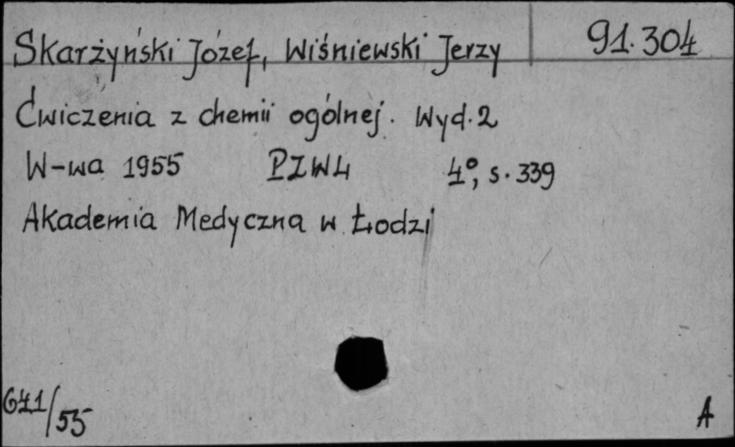 Skarżyński Józef, Wiśniewski Jerzy
91.304
Ćwiczenia z chemii ogólnej. Wyd. 2
W-wa 1955 PZWL 4°, s. 339
Akademia Medyczna w Łodzi
641/55
A